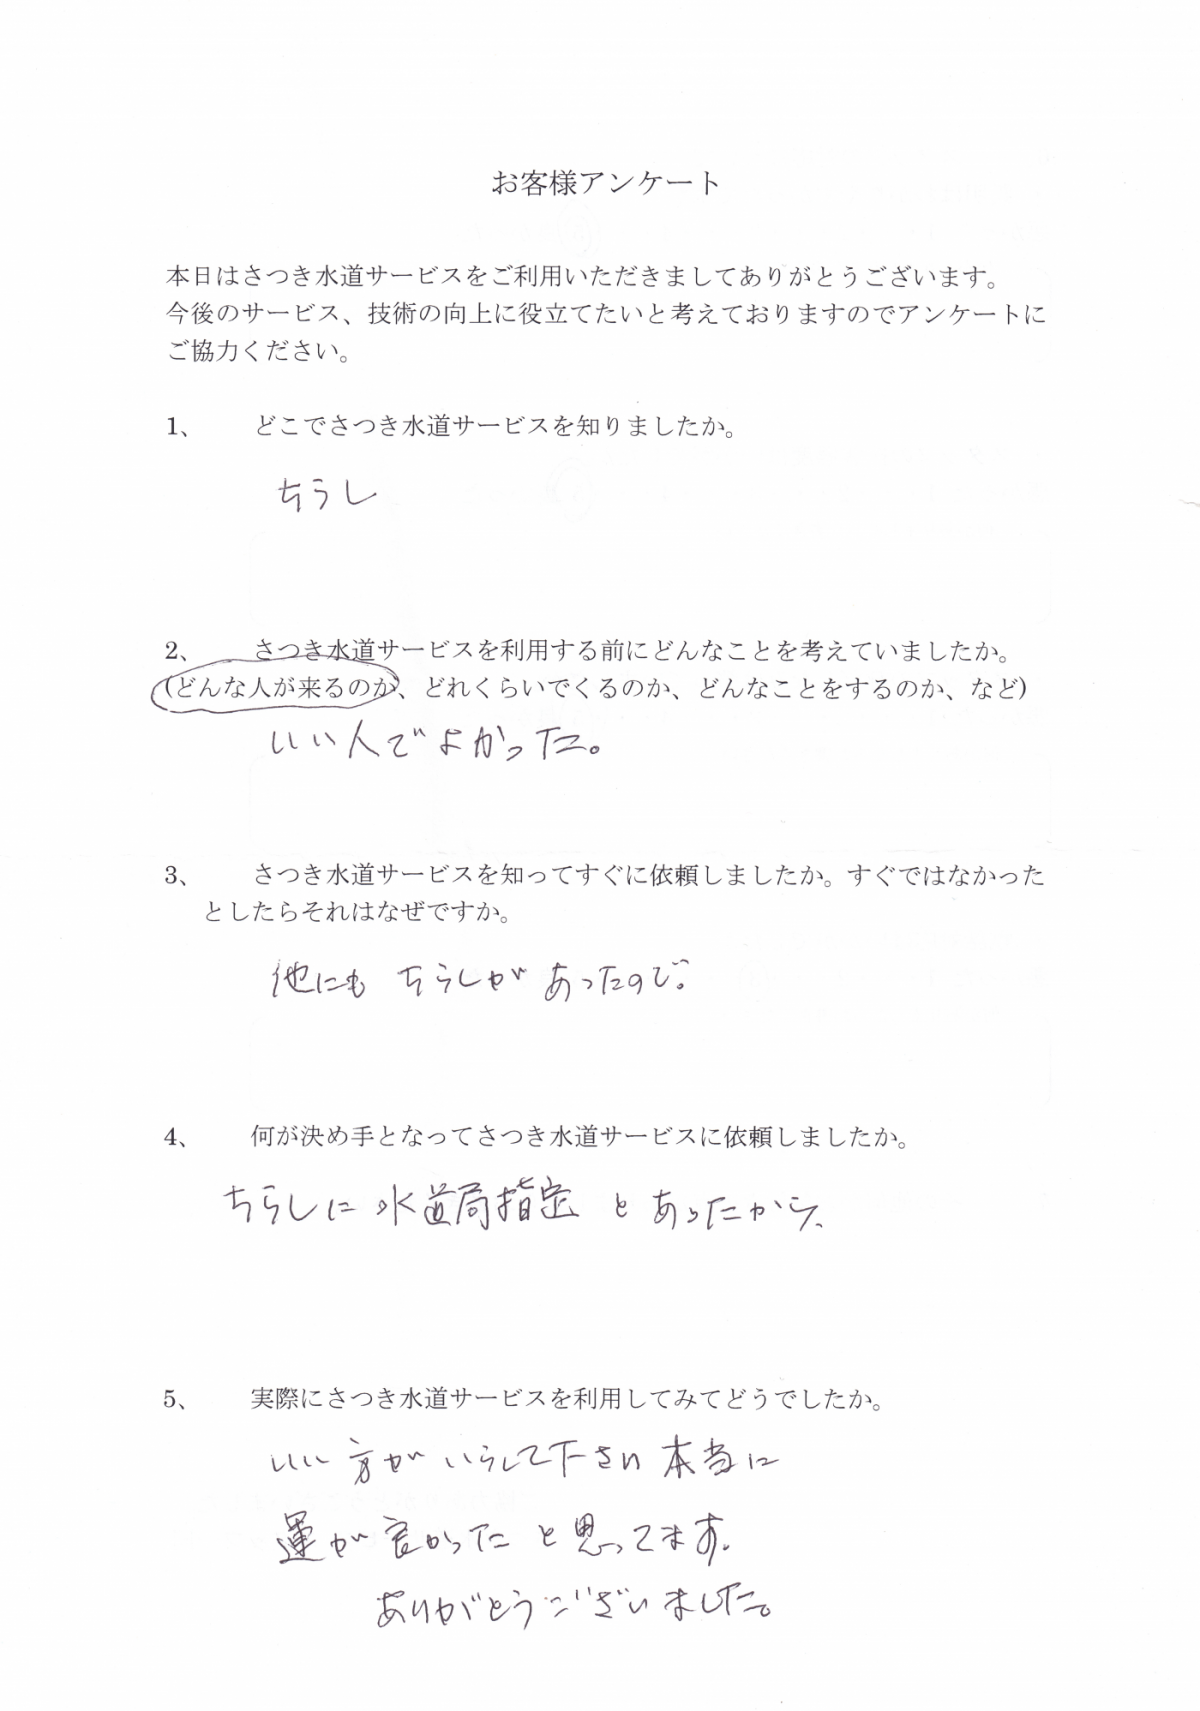 お客様アンケート
本日はさつき水道サービスをご利用いただきましてありがとうございます。
今後のサービス、技術の向上に役立てたいと考えておりますのでアンケートに
ご協力ください。
1、 どこでさつき水道サービスを知りましたか。
ちらし
2、 さつき水道サービスを利用する前にどんなことを考えていましたか。
(どんな人が来るのか、どれくらいでくるのか、どんなことをするのか、など)
いい人でよかった。
3、 さつき水道サービスを知ってすぐに依頼しましたか。すぐではなかった
としたらそれはなぜですか。
他にもちらしがあったので。
4、 何が決め手となってさつき水道サービスに依頼しましたか。
ちらしに水道局指定とあったから、
5、 実際にさつき水道サービスを利用してみてどうでしたか。
いい方がいらして下さい本当に
運が良かったと思ってます。
ありがとうございました。